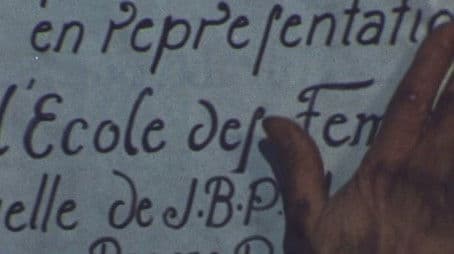 en repreſentatio
l'École deſ Fem
elle de J.B.P.